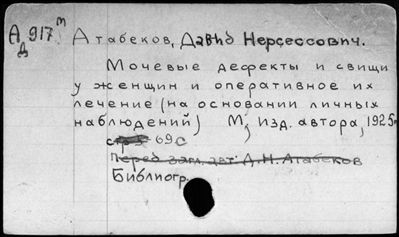 А 917 м Атабеков, Давид Нерсессович.
Д
Мочевые дефекты и свищи
у женщин и оперативное их
лечение (на основании личных
наблюдений) М, Изд. автора, 1925г
стр 69с
Перед загл. авт: Д.Н. Атабеков
Библиогр.